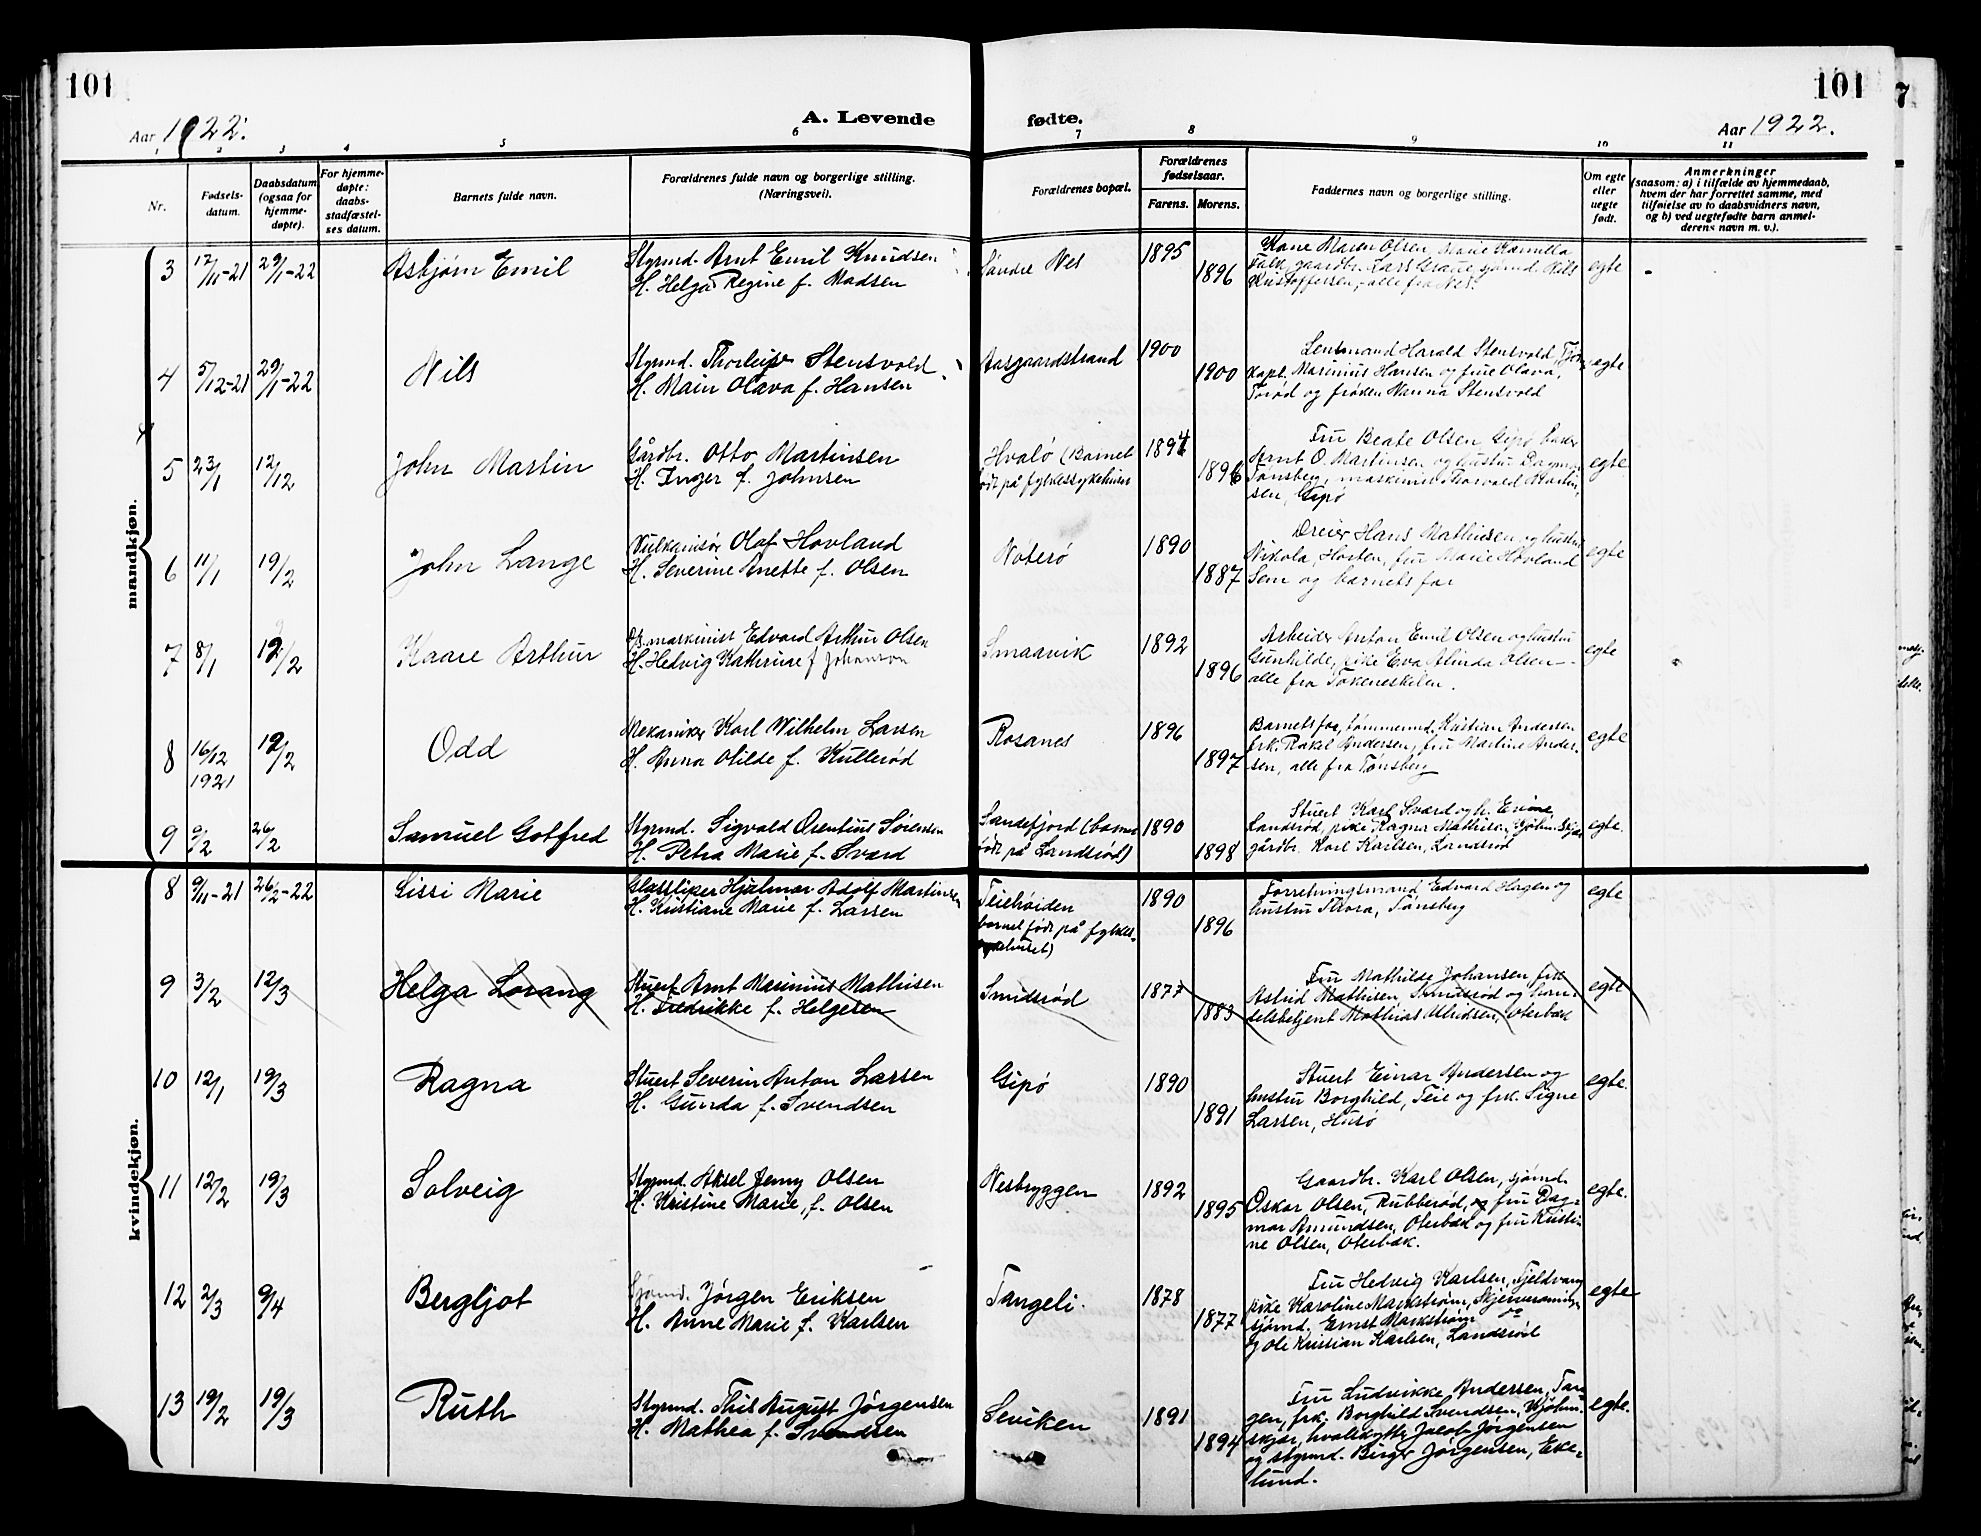 101
101
Aar 1922.
A. Levende fødte.
Aar 1922.
1 2 3 4 5 6 7 8 9 10 11
Nr.
Fødsels-
datum.
Daabsdatum
(ogsaa for
hjemme-
døpte).
For hjemme-
døpte:
daabs-
stadfæstel-
ses datum.
Barnets fulde navn.
Forældrenes fulde navn og borgerlige stilling.
(Næringsvei).
Forældrenes bopæl.
Forældrenes
fødselsaar.
Farens. Morens.
Faddernes navn og borgerlige stilling.
Om egte
eller
uegte
født.
Anmerkninger
(saasom: a) i tilfælde av hjemmedaab,
hvem der har forrettet samme, med
tilføielse av to daabsvidners navn,
og b) ved uegtefødte barn anmel-
derens navn m. v.).
mandkjøn.
3 17/11-21 29/1-22 Asbjørn Emil
Styrmd. Arnt Emil Knudsen
H. Helga Regine f. Madsen
Søndre Nes 1895 1896
Kone Maren Olsen, Marie Kamilla
Falk, gaardbr. Lars Graue, sjømd. Nils
Kristoffersen, - alle fra Nes.
egte
4 5/12-21 29/1-22 Nils
Styrmd. Thorleif Stensvold
H. Main Olava f. Hansen
Aasgaardstrand 1900 1900
Lensmand Harald Stensvold,
kapt. Marinius Hansen og frue Olava,
Torød og frøken Nanna Stensvold
egte
5 23/1 12/12 John Martin
Gårdbr. Otto Martinsen
H. Inger f. Johnsen
Hvalø (Barnet
født på fylkessykehuset
1894 1896
Fru Beate Olsen Gipø
Arnt O. Martinsen og hustru Dagmar
Tønsberg, maskinist Thorvald Martin-
sen, Gipø
egte
6 11/1 19/2 John Lange
Vulkanisør Olaf Hovland
H. Severine Anette f. Olsen
Nøterø 1890 1887
Dreier Hans Mathisen og hustru
Nikola, Horten, fru Marie Hovland
Sem og barnets far
egte
7 8/1 12/2 Kaare Arthur
maskinist Edvard Arthur Olsen
H. Hedvig Kathrine f Johanson
Smaavik 1892 1896
Arbeider Anton Emil Olsen og hustru
Gunhilde, pike Eva Alinda Olsen -
alle fra Tokeneskilen.
egte
8 16/12 1921 12/2 Odd
Mekaniker Karl Wilhelm Larsen
H. Anna Otilde f. Kullerød
Rosanes 1896 1897
Barnets far, tømmermd. Kristian Andersen
frk. Rakel Andersen, fru Martine Ander-
sen, alle fra Tønsberg
egte
9 9/2 26/2 Samuel Gotfred
Styrmd. Sigvald Orentius Sørensen
H. Petra Marie f. Sværd
Sandefjord (barnet
født på Landsrød)
1890 1898
Stuert Karl Sværd og h.
Landsrød, pike Ragna Mathisen,
gårdbr. Karl Karlsen, Landsrød
egte.
kvindekjøn.
8 9/11-21 26/2-22 Sissi Marie
Glassliper Hjalmar Adolf Martinsen
H. Kristiane Marie f. Larsen
Teiehøiden
barnet født på fylkes-
sykehuset)
1890 1896
Forretningsmand Edvard Hagen og
hustru Thora, Tønsberg
egte
9 3/2 12/3 Helga Lorang
Stuert Arnt Marinius Mathisen
H. Fredrikke f. Helgesen
Smidsrød 1877 1883
Fru Mathilde Johansen, frk
Astrid Mathisen, Smidsrød og han-
delsbetjent Mathias Amundsen, Oterbæk
egte
10 12/1 19/3 Ragna
Stuert Severin Anton Larsen
H. Gunda f. Svendsen
Gipø 1890 1891
Stuert Einar Andersen og
hustru Borghild, Teie og frk. Signe
Larsen, Husø
egte.
11 12/2 19/3 Solveig
Styrmd. Aksel Jenny Olsen
H. Kristine Marie, f. Olsen
Nesbryggen 1892 1895
Gaardbr. Karl Olsen, sjømd.
Oskar Olsen, Rubberød, og fru Dag-
mar Amundsen, Oterbæk og fru Kristi-
ne Olsen, Oterbæk.
egte.
12 2/3 9/4 Bergljot
Sjømd. Jørgen Eriksen
H. Anne Marie f. Karlsen
Tangeli. 1878 1877
Fru Hedvig Karlsen, Fjeldvang
pike Karoline Markstrøm,
sjømd. Ernst Markstrøm
og Ole Kristian Karlsen, Landsrød
egte
13 19/2 19/3 Ruth
Styrmd. This August Jørgensen
H. Mathea f. Svendsen
Seviken 1891 1894
Fru Ludvikke Andersen, Tan
gen, frk. Borghild Svendsen, Kjølm-
skjær, hvalskytter Jacob Jørgensen
og styrmd. Birger Jørgensen, Eke-
lund.
egte.